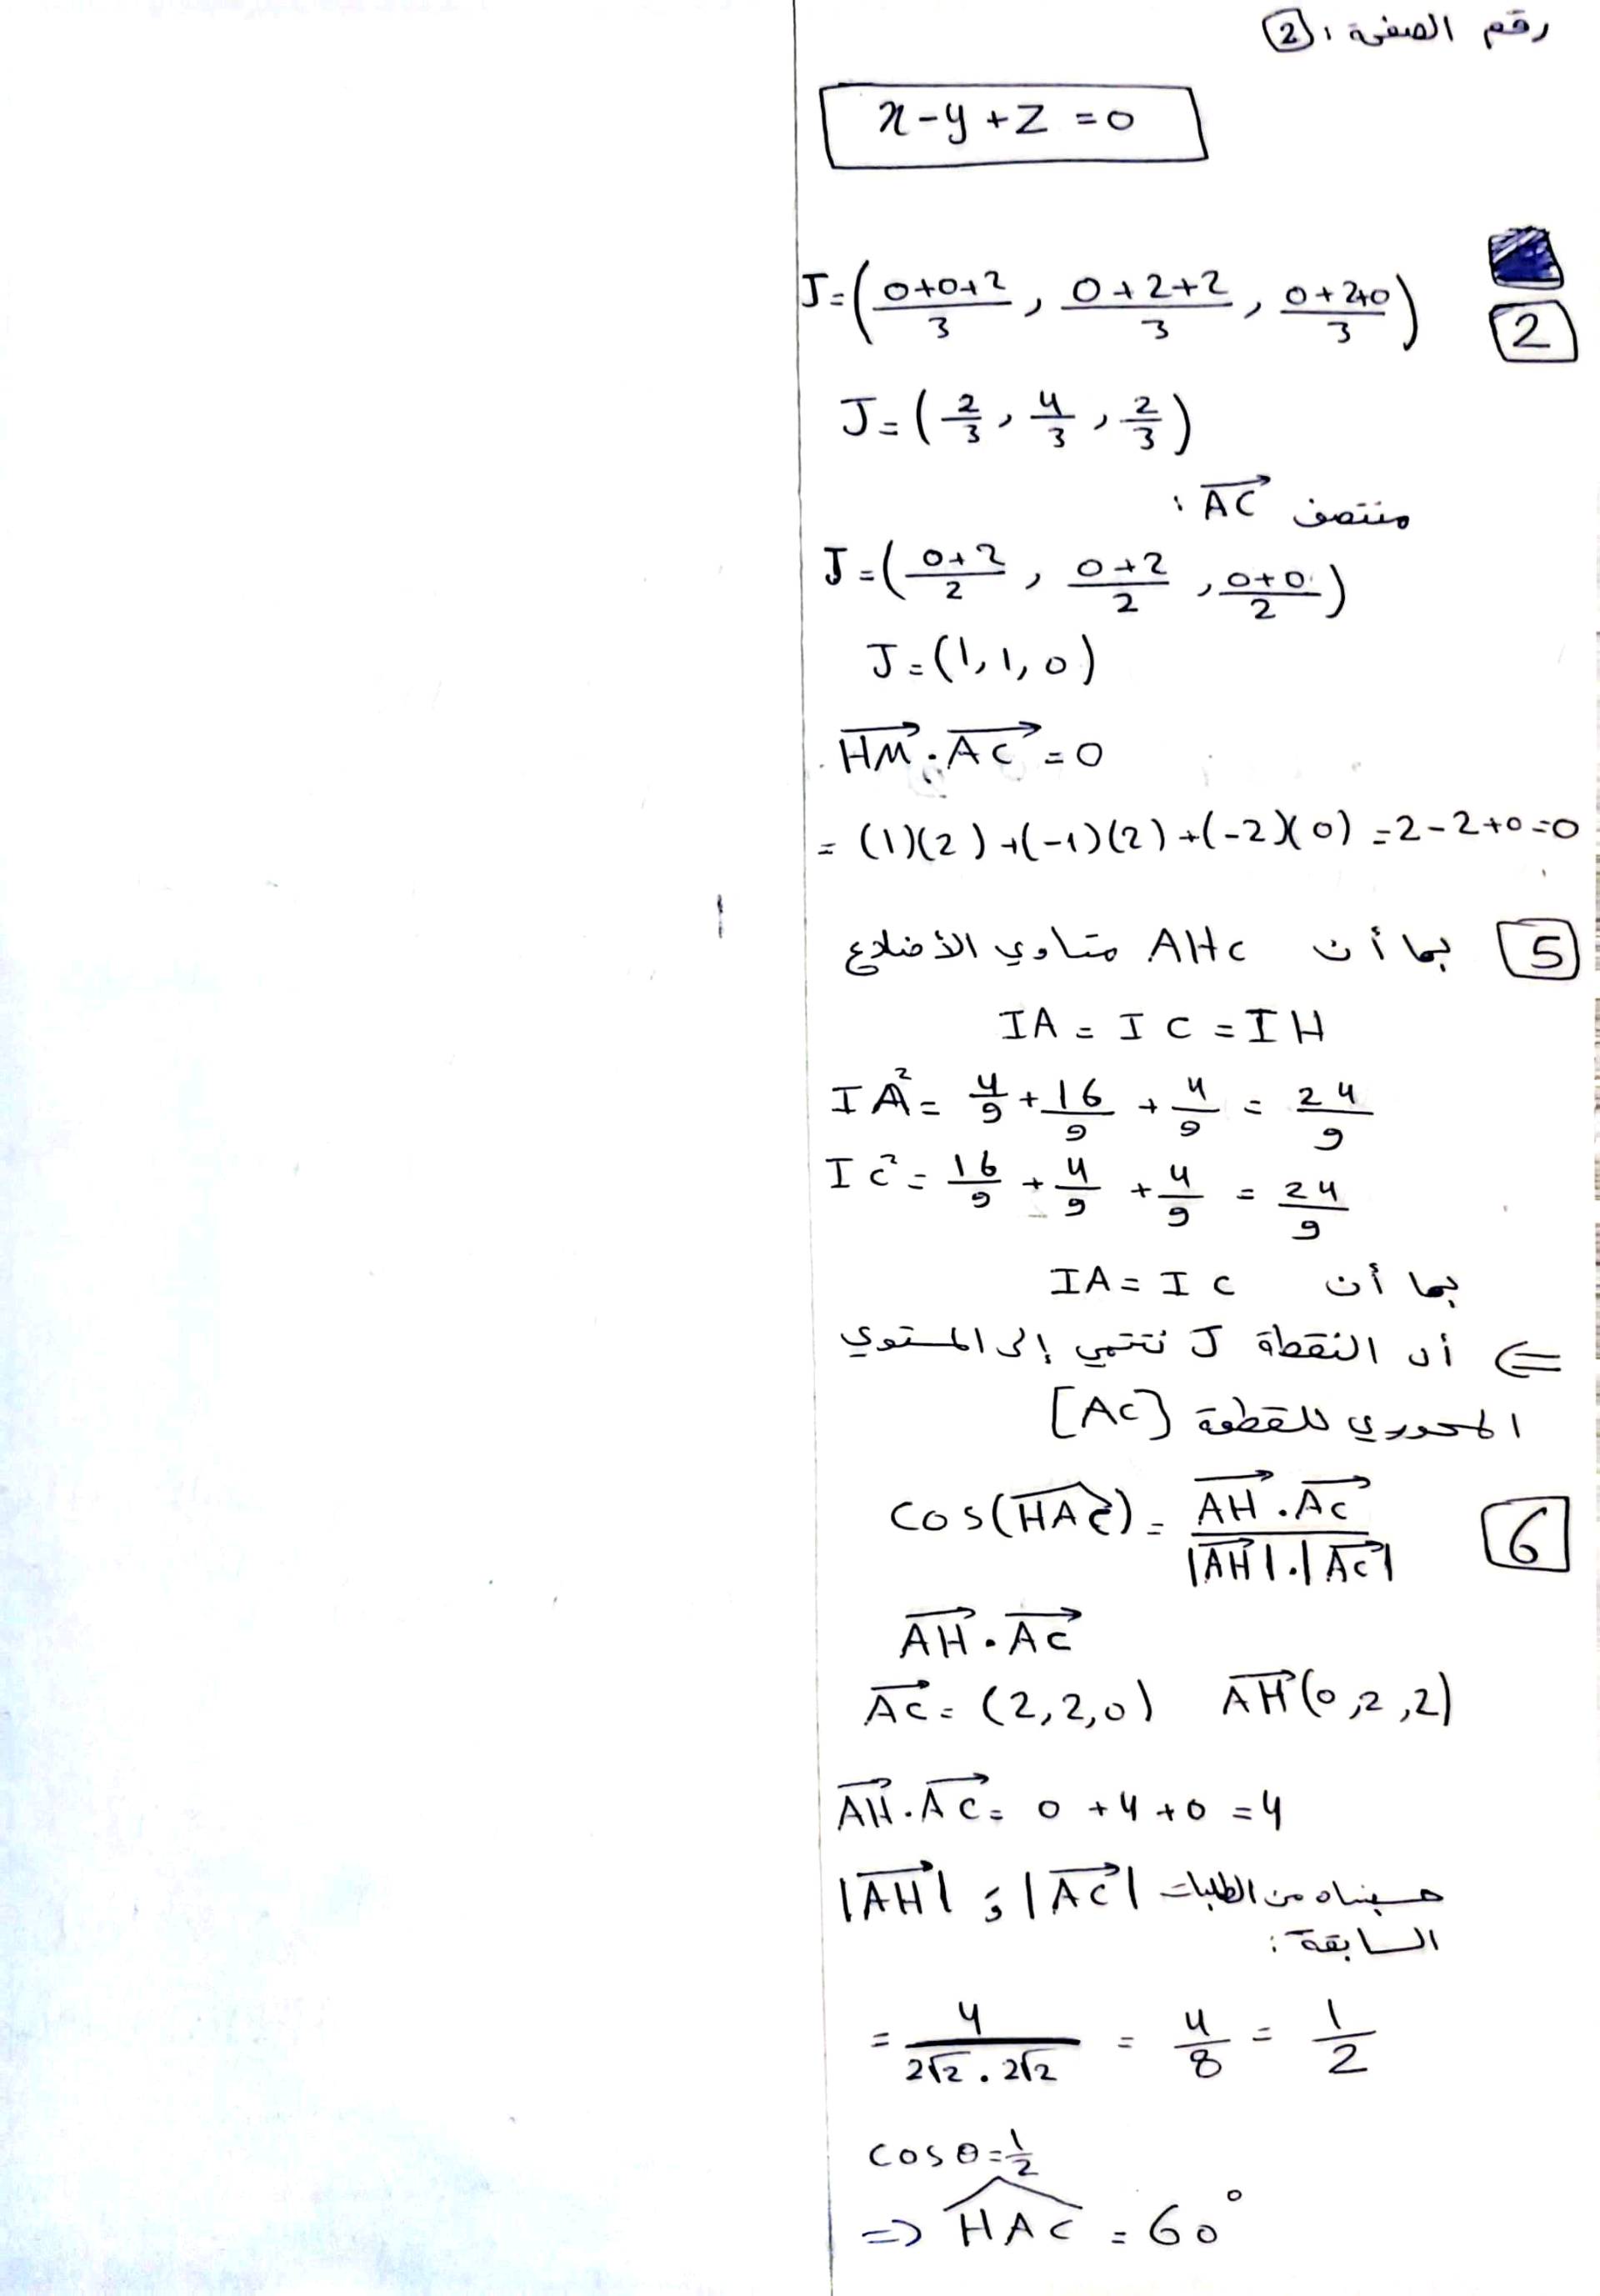 رقم الصفحة: 2
x - y + z = 0
2
J = (0+0+2/3 , 0+2+2/3 , 0+2+0/3)
J = (2/3 , 4/3 , 2/3)
منتصف AC :
J = (0+2/2 , 0+2/2 , 0+0/2)
J = (1, 1, 0)
HM . AC = 0
= (1)(2) + (-1)(2) + (-2)(0) = 2 - 2 + 0 = 0
5 بما أن AHC متاوي الأضلاع
IA = IC = IH
IA² = 4/9 + 16/9 + 4/9 = 24/9
IC² = 16/9 + 4/9 + 4/9 = 24/9
بما أن IA = IC
⇐ أن النقطة J تنتمي إلى المستوي
المحوري للقطعة [AC]
6 cos(HAC) = AH . AC / |AH| . |AC|
AH . AC
AC = (2, 2, 0) AH (0, 2, 2)
AH . AC = 0 + 4 + 0 = 4
|AH| و |AC| حسبناه من الطلبات
السابقة:
= 4 / 2√2 . 2√2 = 4/8 = 1/2
cos θ = 1/2
=> HAC = 60°